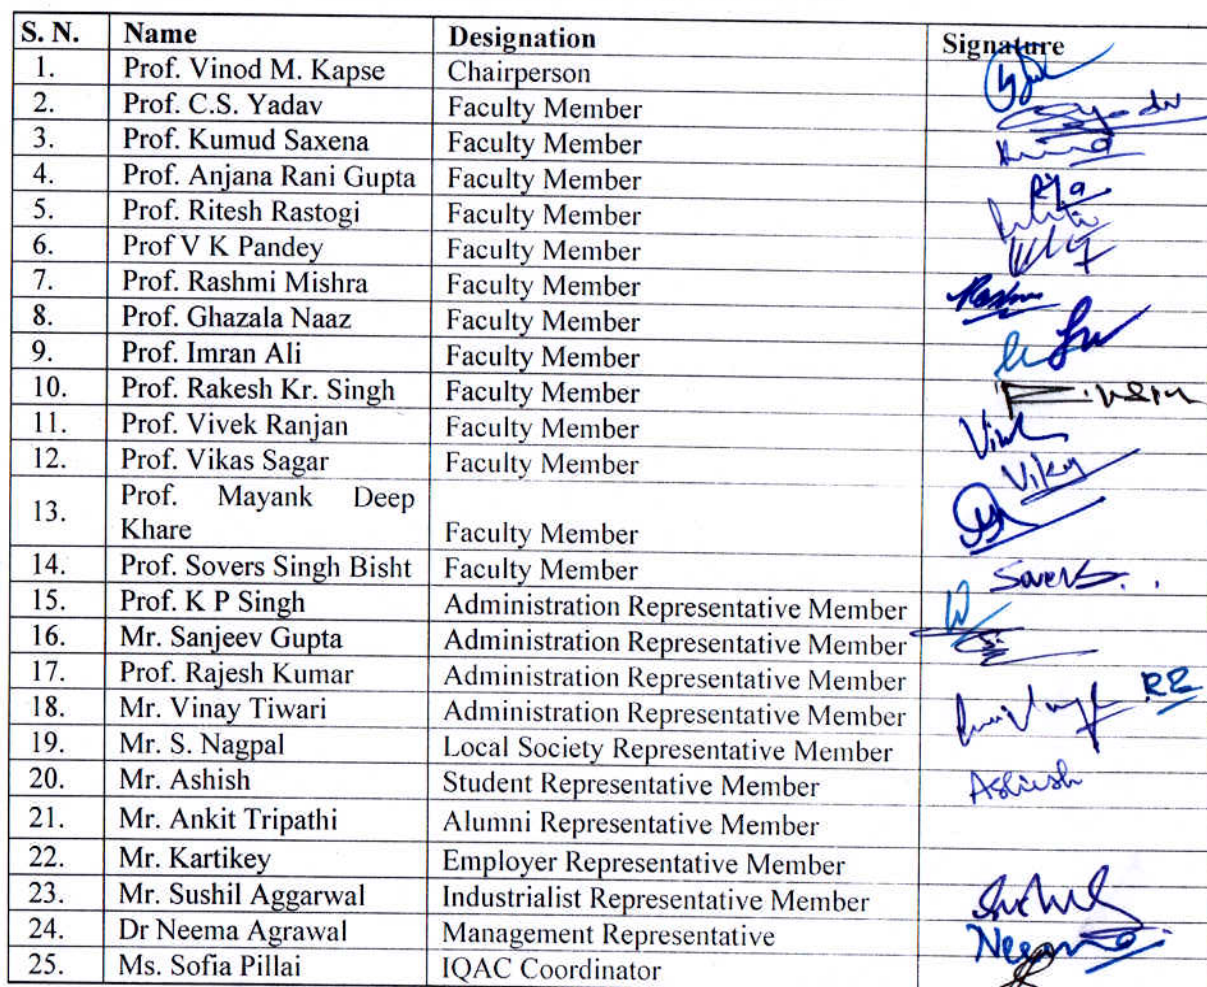 S. N. Name Designation Signature
1. Prof. Vinod M. Kapse Chairperson
2. Prof. C.S. Yadav Faculty Member
3. Prof. Kumud Saxena Faculty Member
4. Prof. Anjana Rani Gupta Faculty Member
5. Prof. Ritesh Rastogi Faculty Member
6. Prof V K Pandey Faculty Member
7. Prof. Rashmi Mishra Faculty Member
8. Prof. Ghazala Naaz Faculty Member
9. Prof. Imran Ali Faculty Member
10. Prof. Rakesh Kr. Singh Faculty Member
11. Prof. Vivek Ranjan Faculty Member
12. Prof. Vikas Sagar Faculty Member
13. Prof. Mayank Deep
Khare Faculty Member
14. Prof. Sovers Singh Bisht Faculty Member Sovers..
15. Prof. K P Singh Administration Representative Member
16. Mr. Sanjeev Gupta Administration Representative Member
17. Prof. Rajesh Kumar Administration Representative Member
18. Mr. Vinay Tiwari Administration Representative Member
19. Mr. S. Nagpal Local Society Representative Member
20. Mr. Ashish Student Representative Member Ashish
21. Mr. Ankit Tripathi Alumni Representative Member
22. Mr. Kartikey Employer Representative Member
23. Mr. Sushil Aggarwal Industrialist Representative Member
24. Dr Neema Agrawal Management Representative Neema
25. Ms. Sofia Pillai IQAC Coordinator